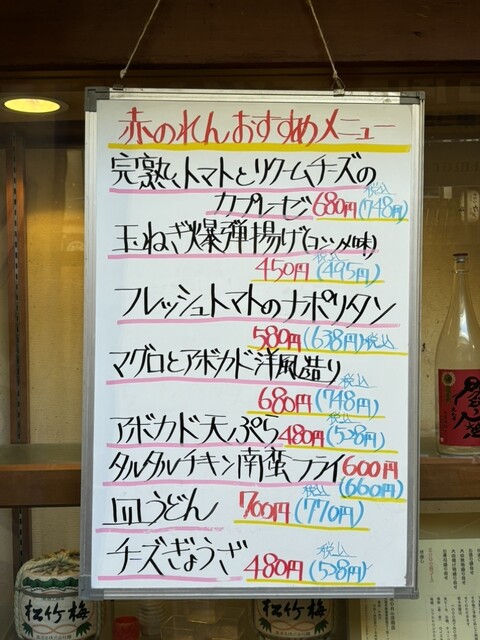 赤のれんおすすめメニュー
完熟トマトとクリームチーズの
カプレーゼ 680円 税込(748円)
玉ねぎ爆弾揚げ(コンソメ味)
450円 税込(495円)
フレッシュトマトのナポリタン
580円(638円)税込
マグロとアボカド洋風造り
680円 税込(748円)
アボカド天ぷら 480円 税込(528円)
タルタルチキン南蛮フライ 600円
(660円)
皿うどん 700円 税込(770円)
チーズぎょうざ 480円 税込(528円)
松竹梅
松竹梅